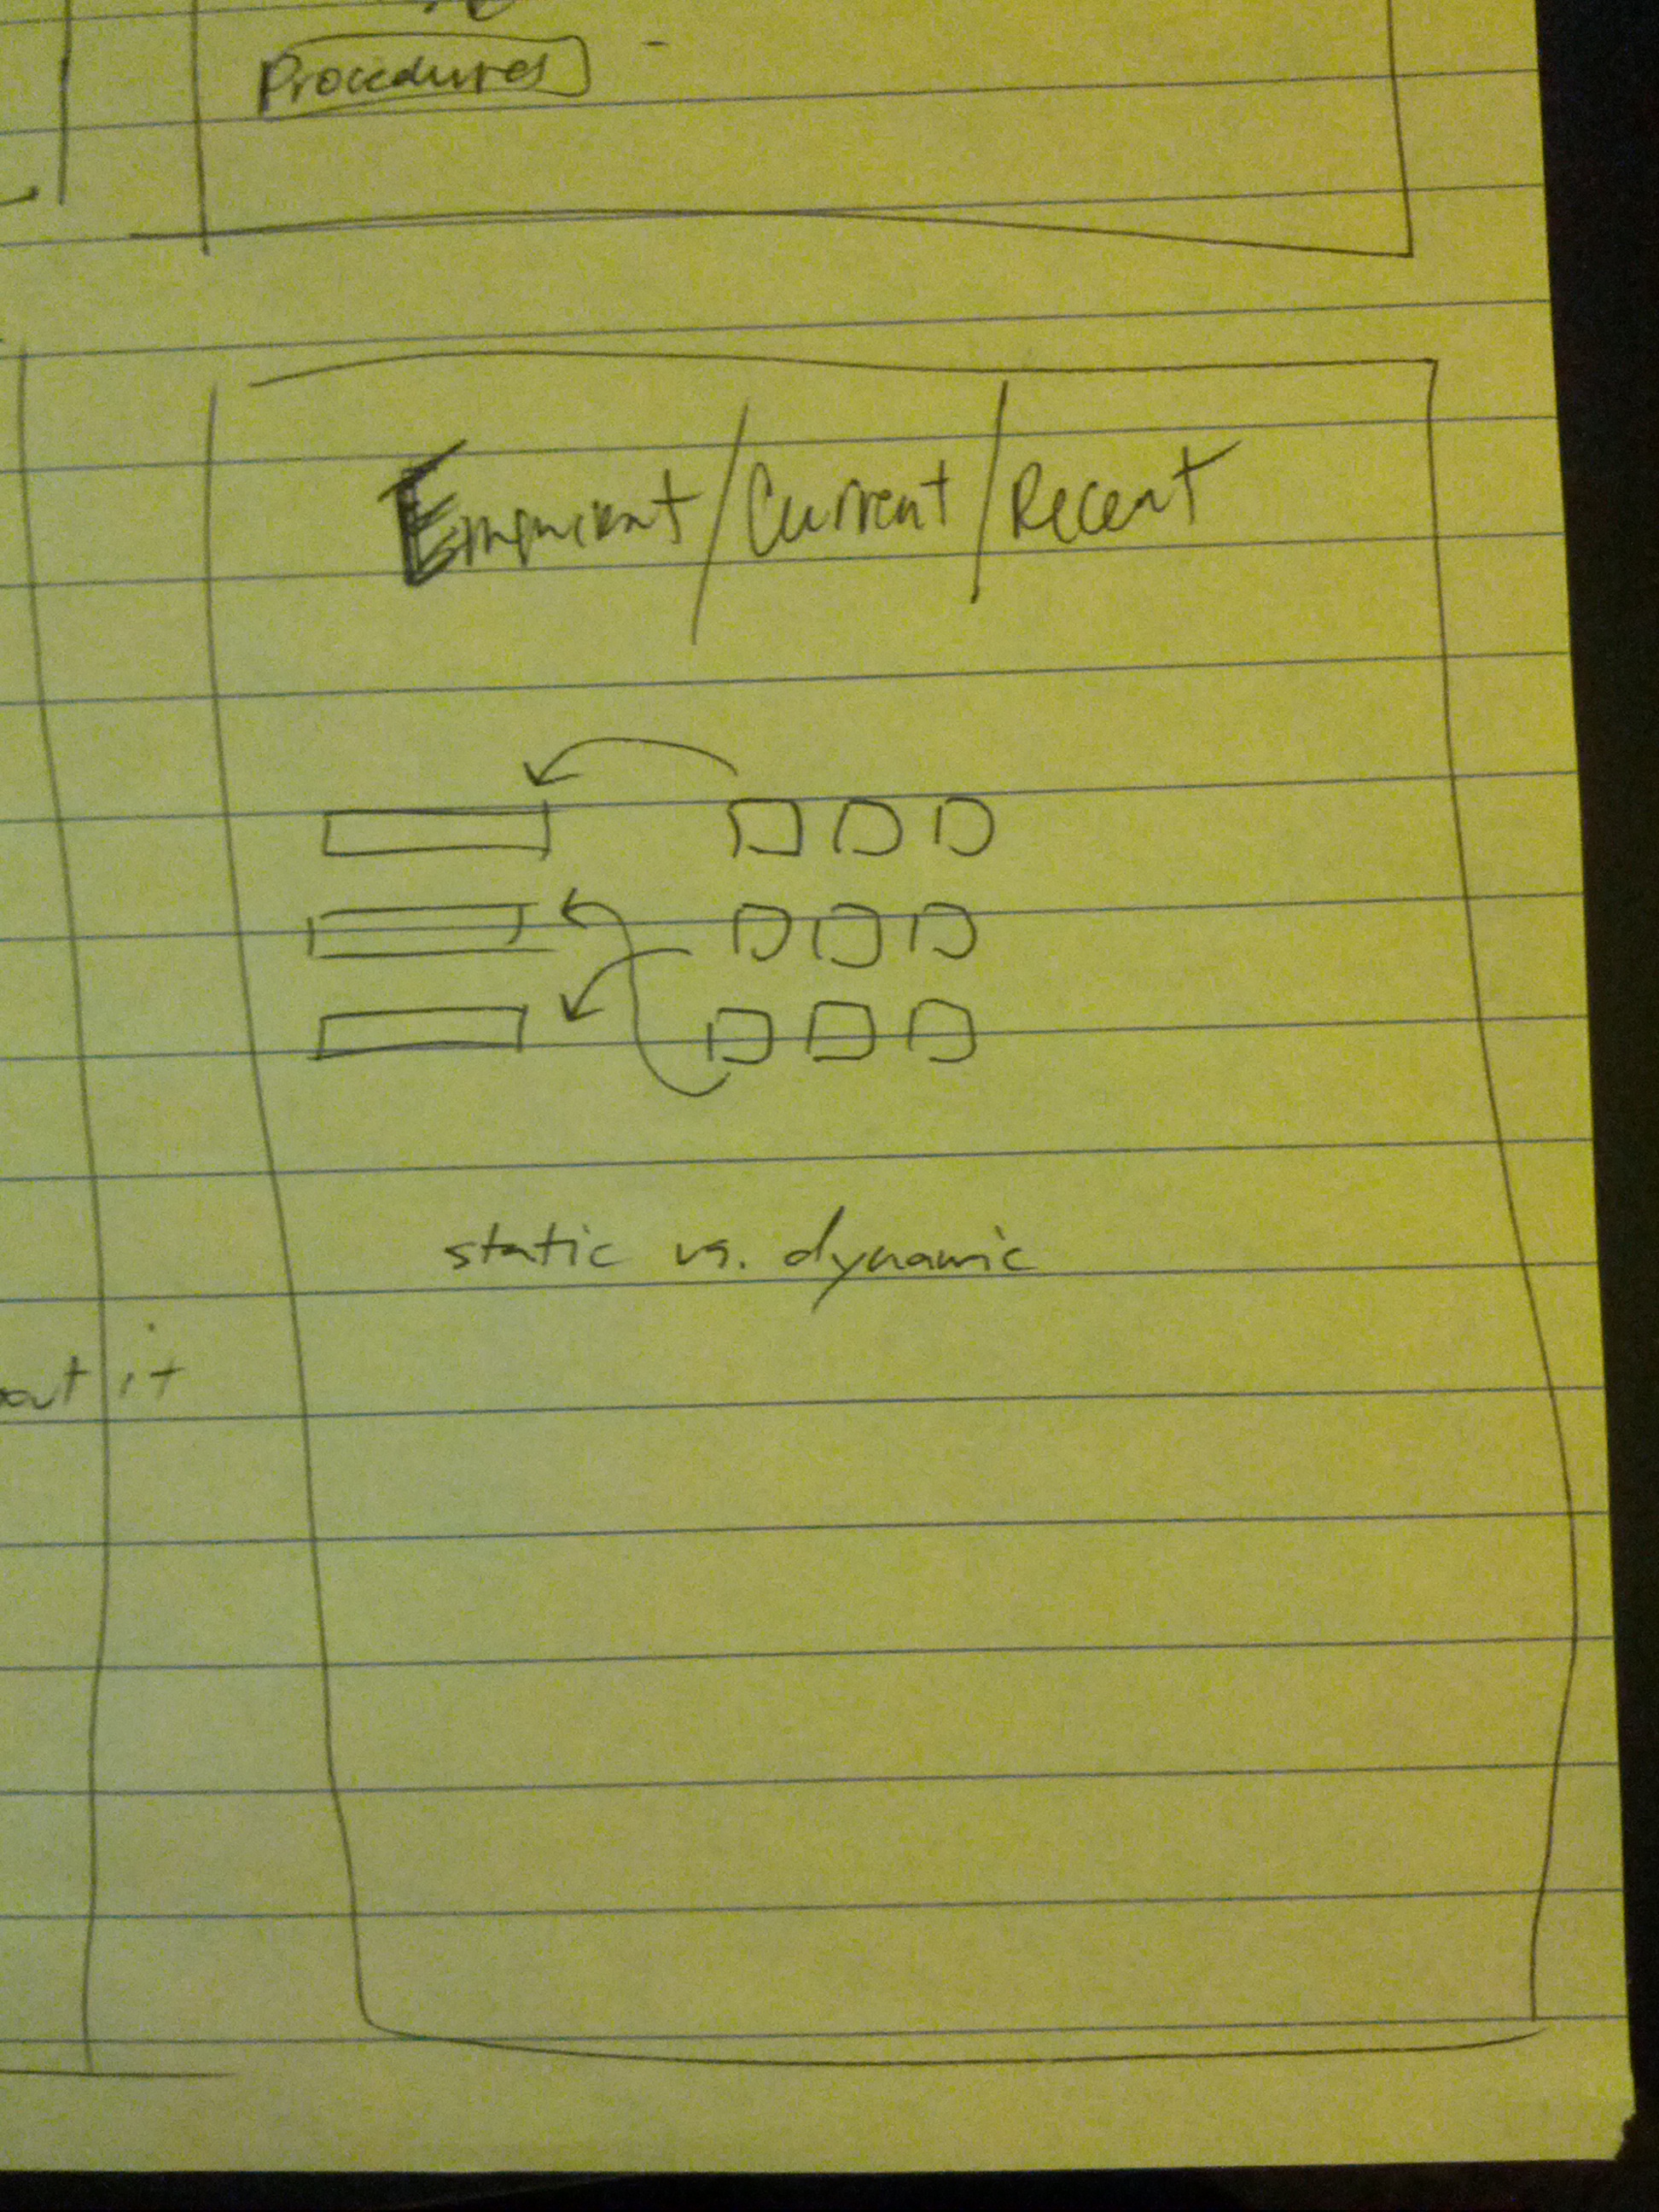 Procedures
/ Current / Recent
static vs. dynamic
out it